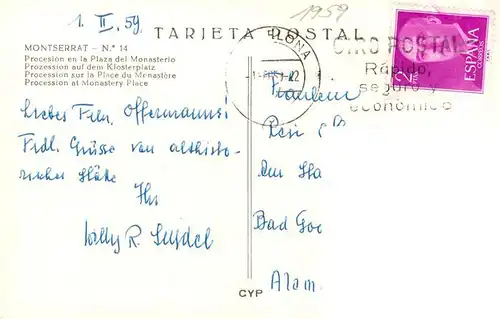 1. II. 59.
1959
TARJETA POSTAL
MONTSERRAT – N.° 14
Procesion en la Plaza del Monasterio
Prozession auf dem Klosterplatz
Procession sur la Place du Monastère
Procession at Monastery Place
GIRO POSTAL
Rápido,
seguro y
económico
2
PTAS
ESPAÑA
CORREOS
Liebes Frln. Offermanns!
Frdl. Grüsse von althisto-
rischer Stätte
Ihr
Willy R. Seydel
Fräulein
Bad
CYP